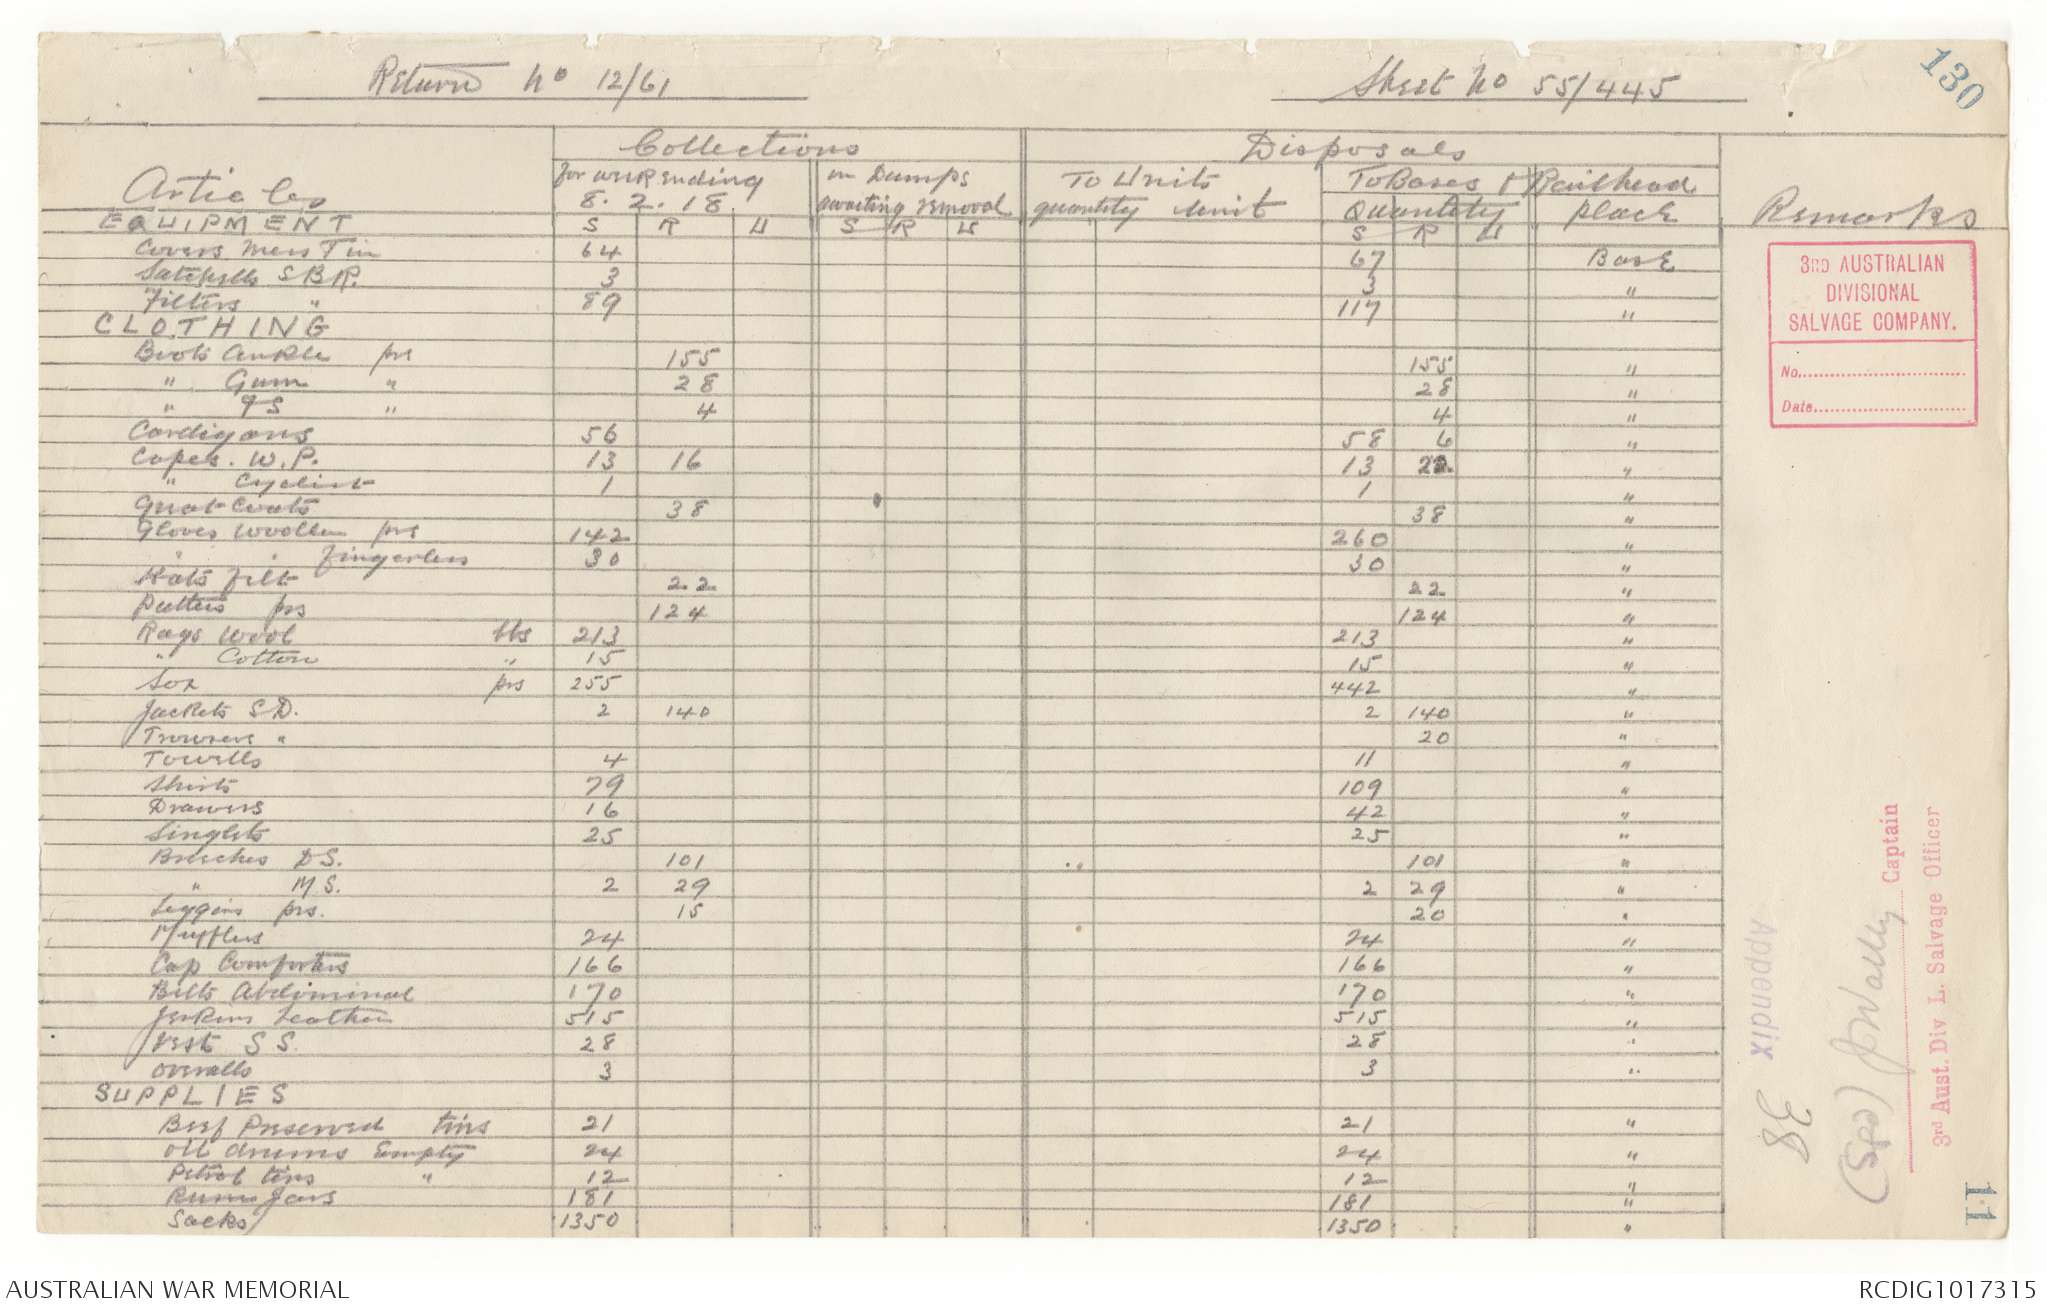 130
Return No 12/61 Sheet No 55/445
Collections Disposals
Articles for week ending 8.2.18. in Dumps awaiting removal To Units quantity Unit To Bases & Railhead Quantity place Remarks
EQUIPMENT S R U S R U S R U
Covers Mess Tin 64 67 Base
Satchells S.B.R. 3 3 "
Filters " 89 117 "
CLOTHING
Boots Ankle prs 155 155 "
" Gum " 28 28 "
" " 4 4 "
Cardigans 56 58 6 "
Capes. W.P. 13 16 13 22 "
" Cyclist 1 1 "
Great Coats 38 38 "
Gloves Woollen prs 142 260 "
" " fingerless 30 30 "
Hats felt 22 22 "
Puttees prs 124 124 "
Rags Wool lbs 213 213 "
" Cotton " 15 15 "
Sox prs 255 442 "
Jackets S.D. 2 140 2 140 "
Trousers " 20 "
Towells 4 11 "
Shirts 79 109 "
Drawers 16 42 "
Singlets 25 25 "
Breeches D.S. 101 101 "
" M.S. 2 29 2 29 "
Leggins prs. 15 20 "
Mufflers 24 24 "
Cap Comforters 166 166 "
Belts Abdominal 170 170 "
Jerkins Leather 515 515 "
Vests S S. 28 28 "
Overalls 3 3 "
SUPPLIES
Beef Preserved tins 21 21 "
Oil drums Empty 24 24 "
Petrol tins " 12 12 "
Rum Jars 181 181 "
Sacks 1350 1350 "
3RD AUSTRALIAN
DIVISIONAL
SALVAGE COMPANY.
No.
Date
Appendix 38
Captain
3rd Aust. Div L. Salvage Officer
11
AUSTRALIAN WAR MEMORIAL RCDIG1017315